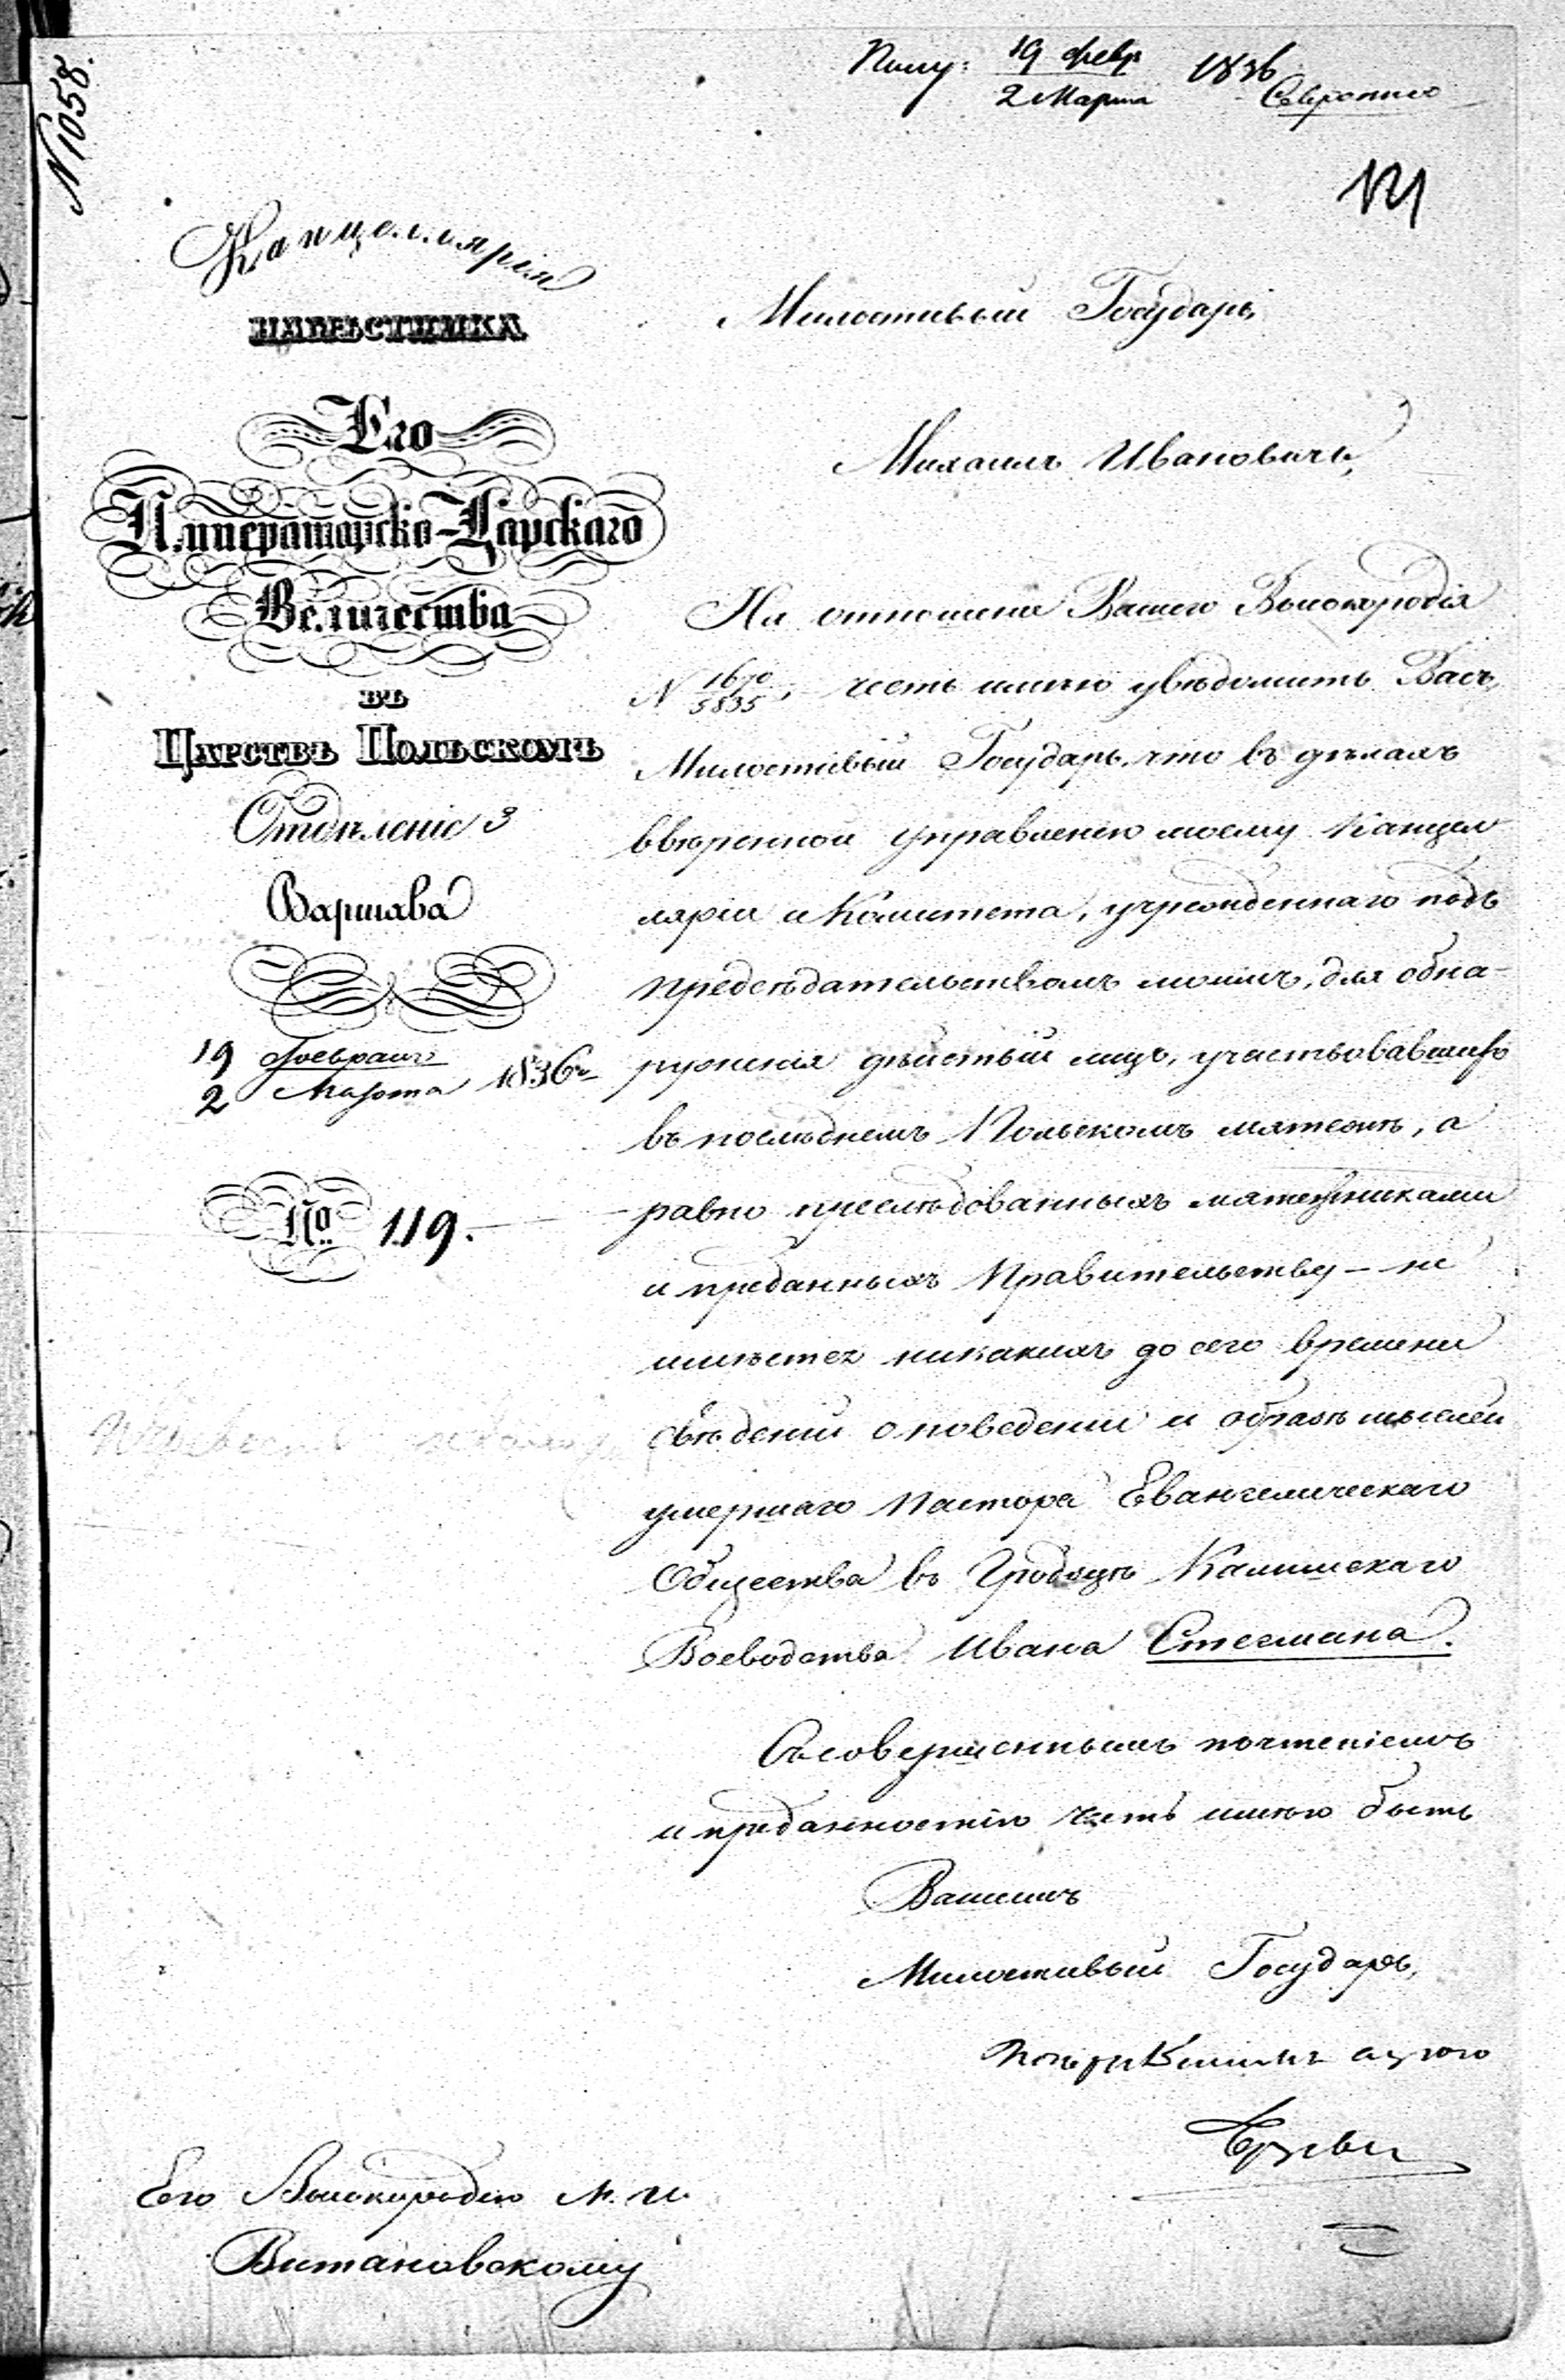 N 1058.
Получ: 19 февр 1836
2 Марта
Срочное
121
Канцеллярія
НАМѢСТНИКА
Его
Императорско-Царскаго
Величества
ВЪ
ЦАРСТВѢ ПОЛЬСКОМЪ
Отдѣленіе 3
Варшава
19 Февраля
2 Марта 1836 г.
№ 119.
Милостивый Государь
Михаилъ Ивановичь,
На отношеніе Вашего Высокородія
N 1670/5835, честь имѣю увѣдомить Васъ,
Милостивый Государь, что въ дѣлахъ
ввѣренной управленію моему Канцел
ляріи и Комитета, учрежденнаго подъ
предсѣдательствомъ моимъ, для обна-
руженія дѣйствій лицъ, участвовавшихъ
въ послѣднемъ Польскомъ мятежѣ, а
равно преслѣдованныхъ мятежниками
и преданныхъ Правительству – не
имѣется никакихъ до сего времени
свѣдѣній о поведеніи и образѣ мыслей
умершаго Пастора Евангелическаго
Общества въ Гродзцѣ Калишскаго
Воеводства Ивана Стегмана.
Съ совершеннымъ почтеніемъ
и преданностію честь имѣю быть
Вашимъ
Милостивый Государь,
покорнѣйшимъ слугою
Его Высокородію М. И.
Витановскому